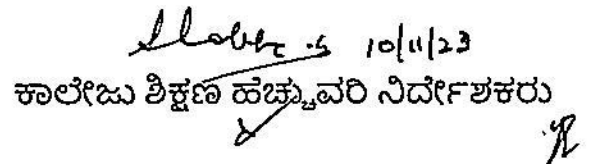 10/11/23
ಕಾಲೇಜು ಶಿಕ್ಷಣ ಹೆಚ್ಚುವರಿ ನಿರ್ದೇಶಕರು